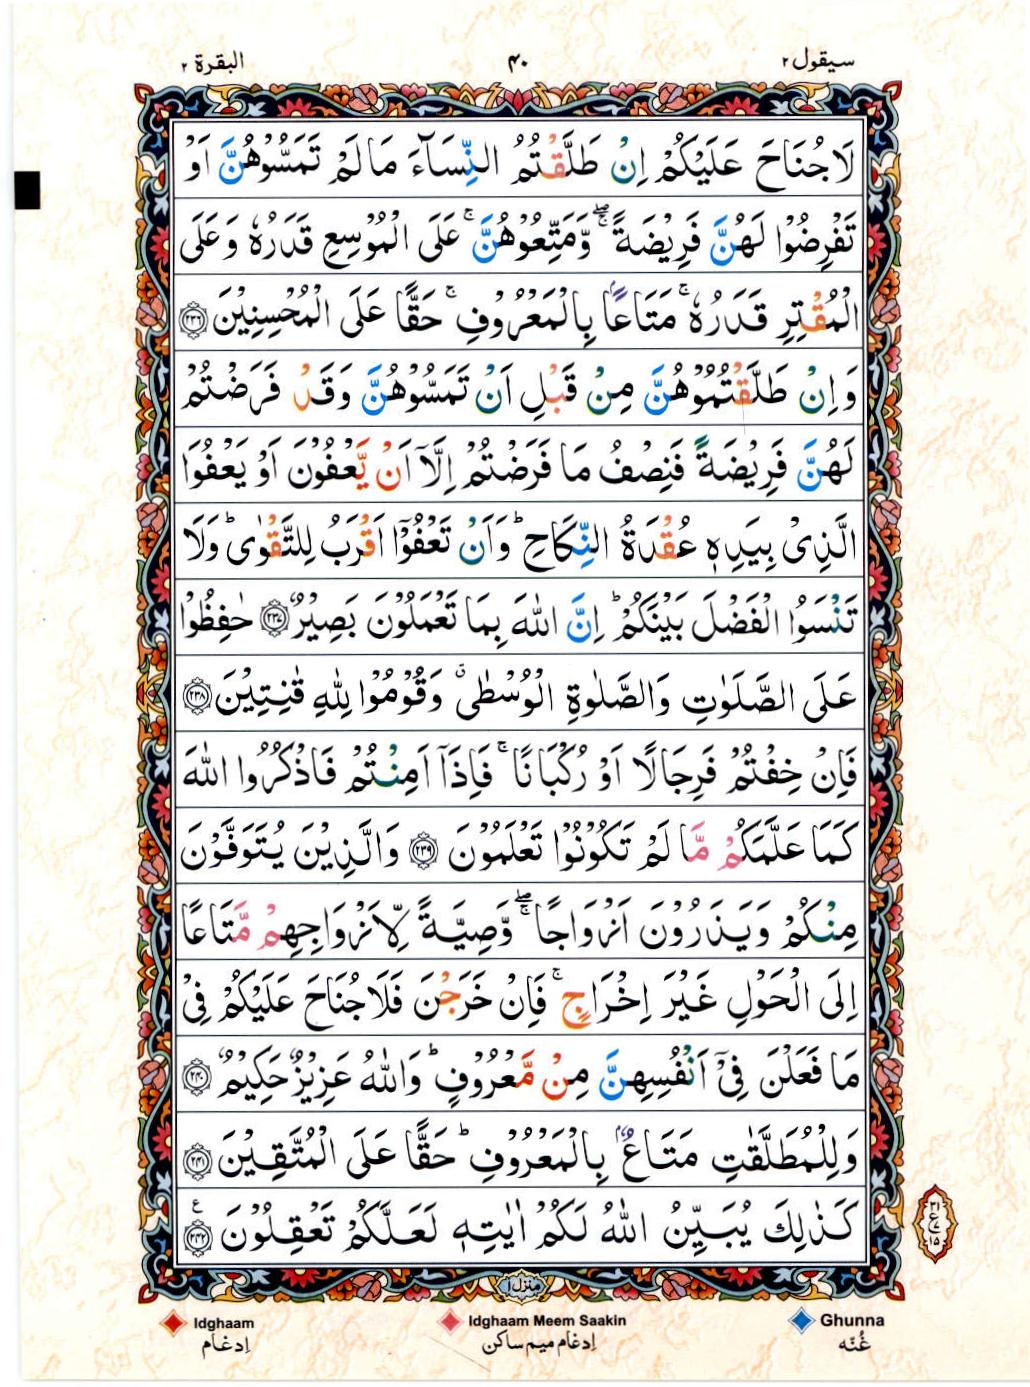 سيقول ٢
٤٠
البقرة ٢
لَا جُنَاحَ عَلَيْكُمْ اِنْ طَلَّقْتُمُ النِّسَآءَ مَا لَمْ تَمَسُّوْهُنَّ اَوْ
تَفْرِضُوْا لَهُنَّ فَرِيْضَةً ۖۚ وَّمَتِّعُوْهُنَّ ۚ عَلَى الْمُوْسِعِ قَدَرُهٗ وَعَلَى
الْمُقْتِرِ قَدَرُهٗ ۚ مَتَاعًاۢ بِالْمَعْرُوْفِ ۚ حَقًّا عَلَى الْمُحْسِنِيْنَ ﴿۲۳۶﴾
وَاِنْ طَلَّقْتُمُوْهُنَّ مِنْ قَبْلِ اَنْ تَمَسُّوْهُنَّ وَقَدْ فَرَضْتُمْ
لَهُنَّ فَرِيْضَةً فَنِصْفُ مَا فَرَضْتُمْ اِلَّاۤ اَنْ يَّعْفُوْنَ اَوْ يَعْفُوَا
الَّذِىْ بِيَدِهٖ عُقْدَةُ النِّكَاحِ ؕ وَاَنْ تَعْفُوْۤا اَقْرَبُ لِلتَّقْوٰى ؕ وَلَا
تَنْسَوُا الْفَضْلَ بَيْنَكُمْ ؕ اِنَّ اللّٰهَ بِمَا تَعْمَلُوْنَ بَصِيْرٌ ﴿۲۳۷﴾ حٰفِظُوْا
عَلَى الصَّلَوٰتِ وَالصَّلٰوةِ الْوُسْطٰى ۗ وَقُوْمُوْا لِلّٰهِ قٰنِتِيْنَ ﴿۲۳۸﴾
فَاِنْ خِفْتُمْ فَرِجَالًا اَوْ رُكْبَانًا ۚ فَاِذَاۤ اَمِنْتُمْ فَاذْكُرُوا اللّٰهَ
كَمَا عَلَّمَكُمْ مَّا لَمْ تَكُوْنُوْا تَعْلَمُوْنَ ﴿۲۳۹﴾ وَالَّذِيْنَ يُتَوَفَّوْنَ
مِنْكُمْ وَيَذَرُوْنَ اَزْوَاجًا ۖۚ وَّصِيَّةً لِّاَزْوَاجِهِمْ مَّتَاعًا
اِلَى الْحَوْلِ غَيْرَ اِخْرَاجٍ ۚ فَاِنْ خَرَجْنَ فَلَا جُنَاحَ عَلَيْكُمْ فِىْ
مَا فَعَلْنَ فِىْۤ اَنْفُسِهِنَّ مِنْ مَّعْرُوْفٍ ؕ وَاللّٰهُ عَزِيْزٌ حَكِيْمٌ ﴿۲۴۰﴾
وَلِلْمُطَلَّقٰتِ مَتَاعٌۢ بِالْمَعْرُوْفِ ؕ حَقًّا عَلَى الْمُتَّقِيْنَ ﴿۲۴۱﴾
كَذٰلِكَ يُبَيِّنُ اللّٰهُ لَكُمْ اٰيٰتِهٖ لَعَلَّكُمْ تَعْقِلُوْنَ ﴿۲۴۲﴾ ع
٣١
ع ٧
١٥
منزل ١
Idghaam
إدغام
Idghaam Meem Saakin
إدغام ميم ساكن
Ghunna
غُنّه